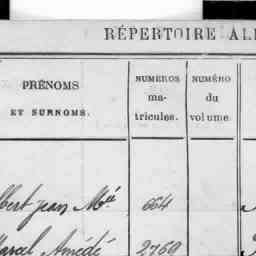 RÉPERTOIRE AL
PRÉNOMS
ET SURNOMS.
NUMEROS
ma-
tricules.
NUMÉRO
du
volume
bert jean Mie 664
arcel Amédé 2759